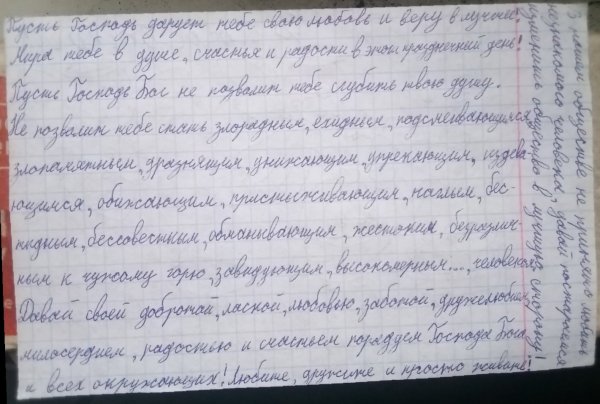 Пусть Господь дарует тебе свою любовь и веру в лучшее!
Мира тебе в душе, счастья и радости в этот праздничный день!
Пусть Господь Бог не позволит тебе сгубить твою душу.
Не позволит тебе стать злорадным, ехидным, подсмеивающимся,
злопамятным, дразнящим, унижающим, упрекающим, издева-
ющимся, обижающим, пристыживающим, наглым, бес-
тыдным, бессовестным, обманывающим, жестоким, безразлич-
ным к чужому горю, завидующим, высокомерным..., человеком.
Давай своей добротой, лаской, любовью, заботой, дружелюбием,
милосердием, радостью и счастьем порадуем Господа Бога
и всех окружающих! Любите, дружите и просто живите!
В нашем обществе не принято любить
незнакомого человека, давай постараемся
изменить общество в лучшую сторону!